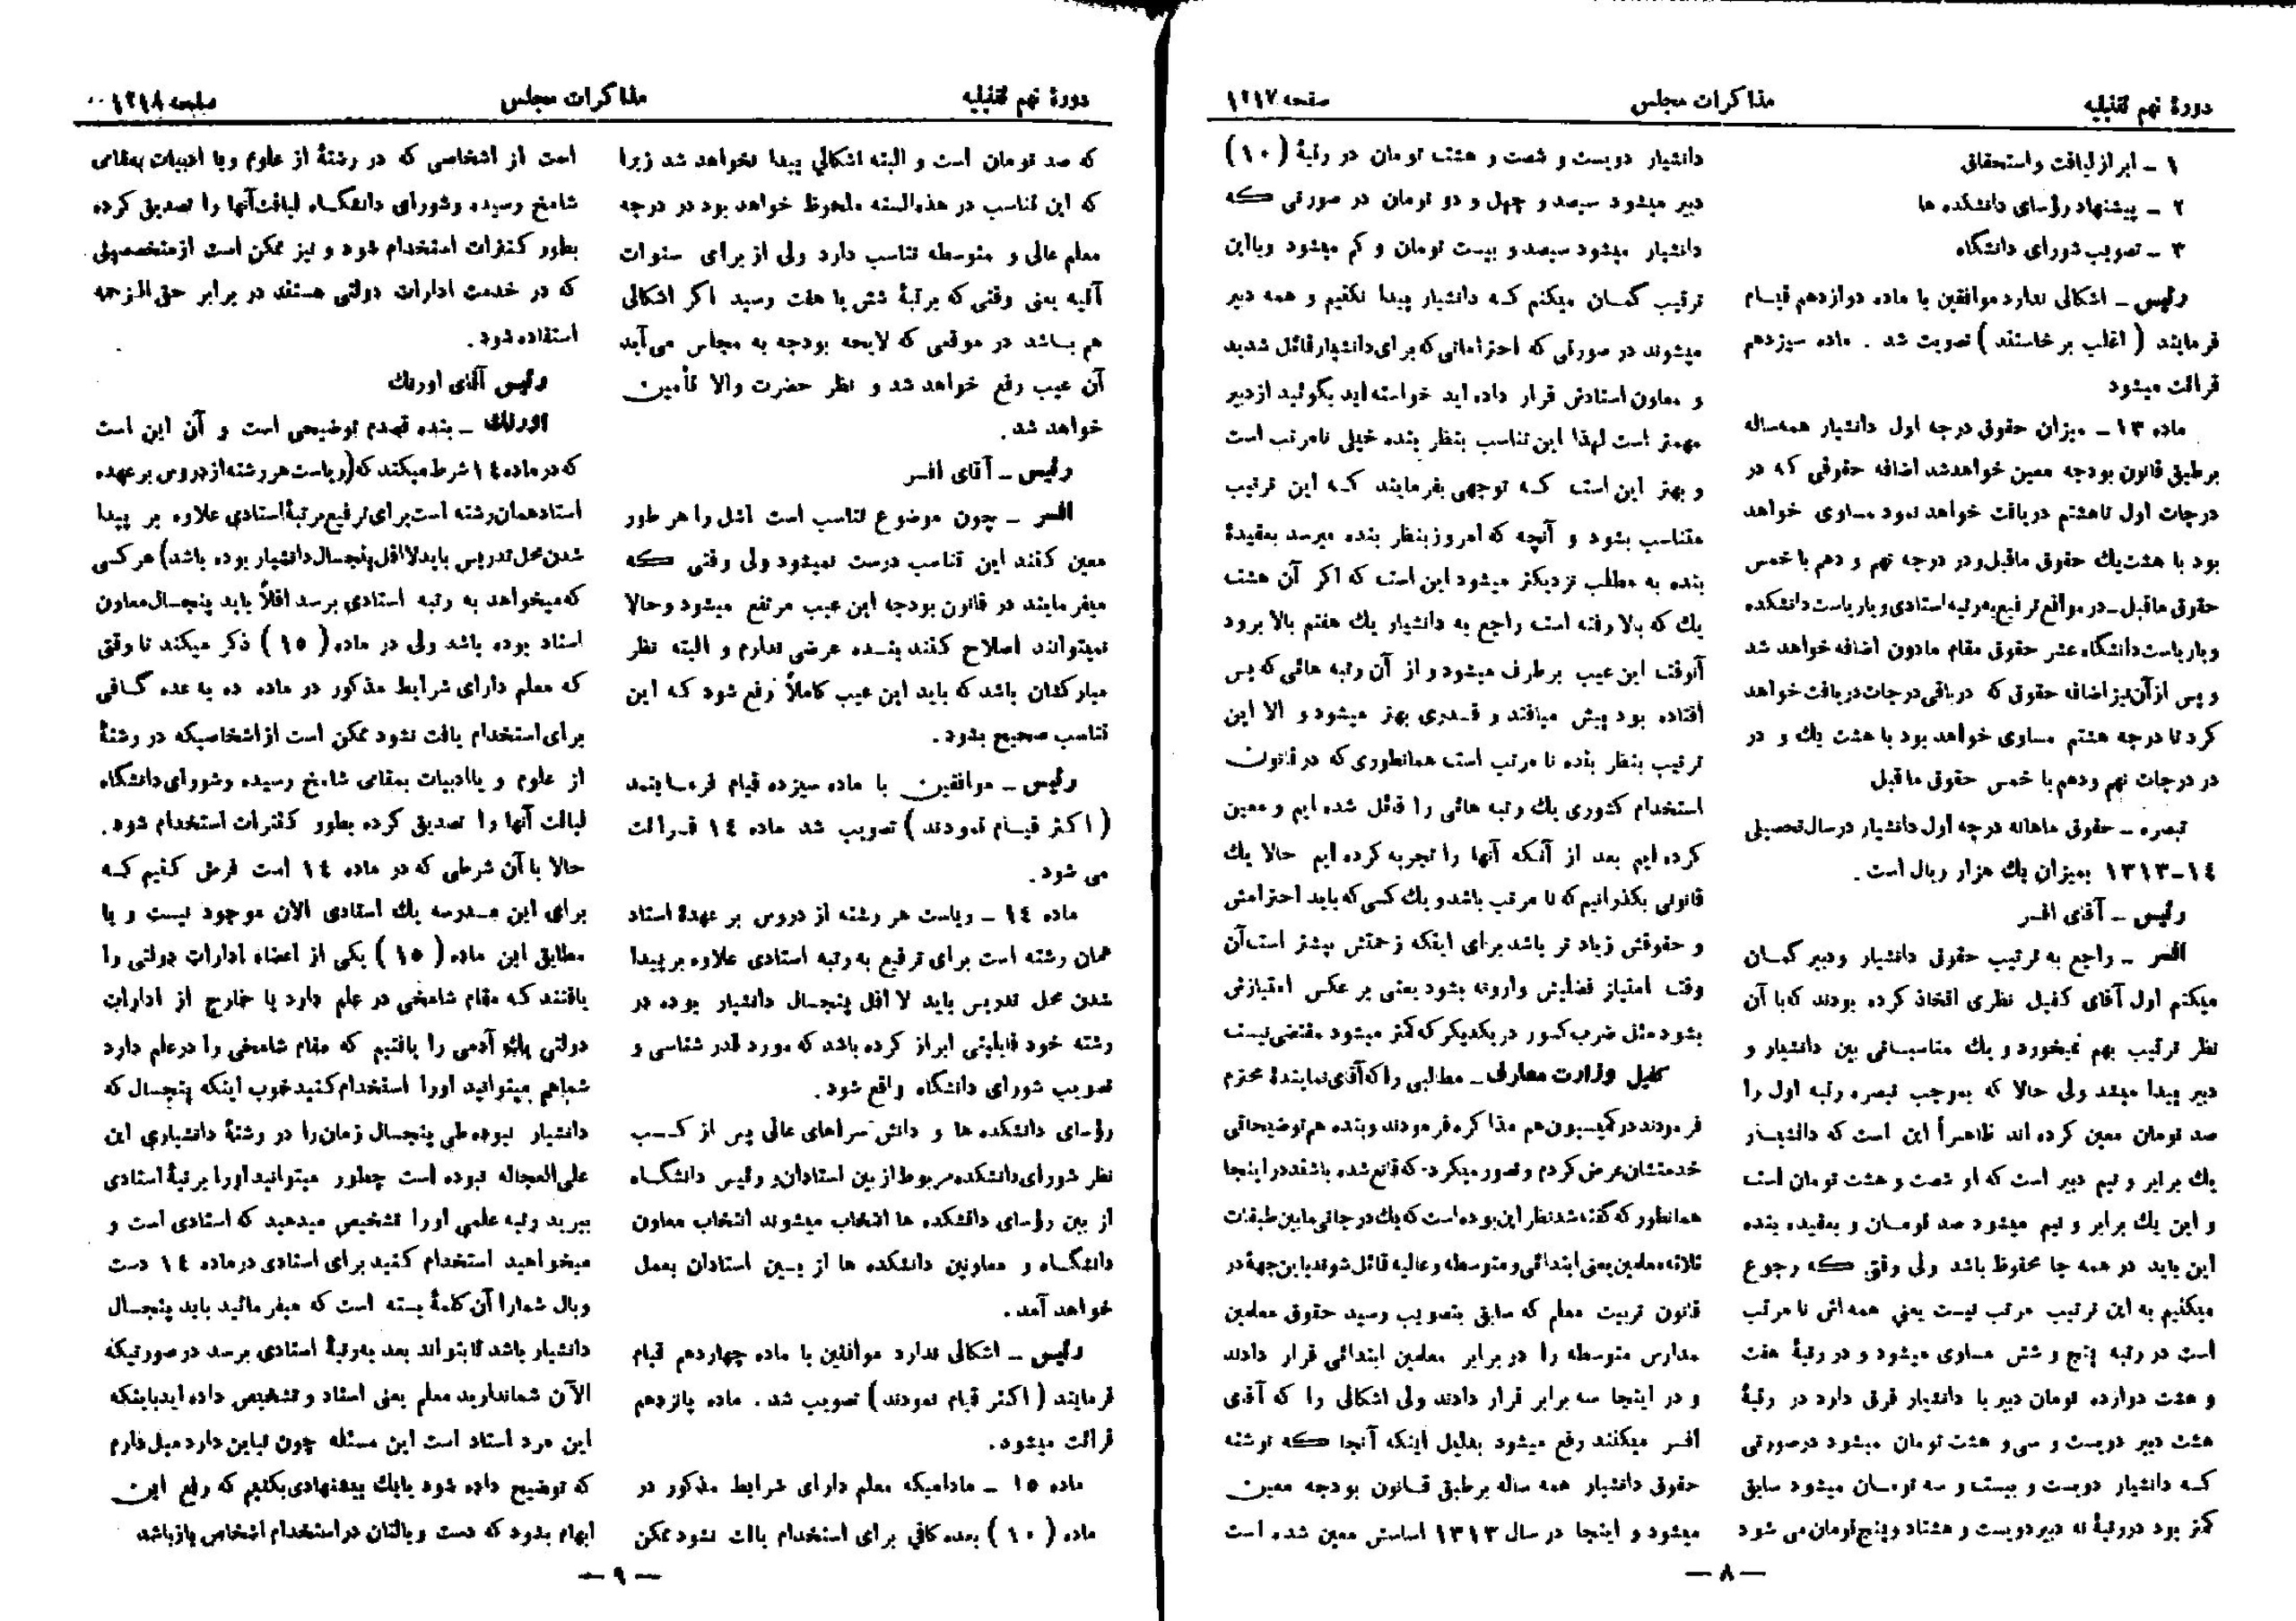 دورهٔ نهم تقنینیه
مذاکرات مجلس
صفحه ۱۲۱۷
۱ ـ ابراز لیاقت و استحقاق
۲ ـ پیشنهاد رؤسای دانشکده ها
۳ ـ تصویب شورای دانشگاه
رئیس ـ اشکالی ندارد موافقین با ماده دوازدهم قیام
فرمایند ( اغلب برخاستند ) تصویت شد . ماده سیزدهم
قرائت میشود
ماده ۱۳ ـ میزان حقوق درجه اول دانشیار همه‌ساله
برطبق قانون بودجه معین خواهدشد اضافه حقوقی که در
درجات اول تاهشتم دریافت خواهد نمود مساوی خواهد
بود با هشت‌یك حقوق ماقبل و در درجه نهم و دهم با خمس
حقوق ماقبل ـ در مواقع ترفیع به‌رتبه استادی و یا ریاست دانشکده
و یا ریاست دانشگاه عشر حقوق مقام مادون اضافه خواهد شد
و پس از آن نیز اضافه حقوق که درباقی درجات دریافت خواهد
کرد تا درجه هشتم مساوی خواهد بود با هشت یك و در
در درجات نهم ودهم با خمس حقوق ماقبل
تبصره ـ حقوق ماهانه درجه اول دانشیار در سال تحصیلی
۱۴-۱۳۱۳ بمیزان یك هزار ریال است .
رئیس ـ آقای افسر
افسر ـ راجع به ترتیب حقوق دانشیار و دبیر گمان
میکنم اول آقای کفیل نظری اتخاذ کرده بودند که با آن
نظر ترتیب بهم نمیخورد و یك مناسباتی بین دانشیار و
دبیر پیدا میشد ولی حالا که بموجب تبصره رتبه اول را
صد تومان معین کرده اند ظاهراً این است که دانشیار
یك برابر و نیم دبیر است که او شصت و هشت تومان است
و این یك برابر و نیم میشود صد تومان و بعقیده بنده
این باید در همه جا محفوظ باشد ولی وقتی که رجوع
میکنیم به این ترتیب مرتب نیست یعنی همه‌اش نا مرتب
است در رتبه پنج و شش مساوی میشود و در رتبهٔ هفت
و هشت دوازده تومان دبیر با دانشیار فرق دارد در رتبهٔ
هشت دبیر دویست و سی و هشت تومان میشود درصورتی
که دانشیار دویست و بیست و سه تومان میشود سابق
کمتر بود دررتبهٔ نه دبیر دویست و هشتاد و پنج تومان می شود
دانشیار دویست و شصت و هشت تومان در رتبهٔ (۱۰)
دبیر میشود سیصد و چهل و دو تومان در صورتی که
دانشیار میشود سیصد و بیست تومان و کم میشود و بااین
ترتیب گمان میکنم که دانشیار پیدا نکنیم و همه دبیر
میشوند در صورتی که احتراماتی که برای دانشیار قائل شدید
و معاون استادش قرار داده اید خواسته اید بگوئید از دبیر
مهمتر است لهذا این تناسب بنظر بنده خیلی نامرتب است
و بهتر این است که توجهی بفرمایند که این ترتیب
متناسب بشود و آنچه که امروز بنظر بنده میرسد بعقیدهٔ
بنده به مطلب نزدیکتر میشود این است که اگر آن هشت
یك که بالا رفته است راجع به دانشیار یك هفتم بالا برود
آنوقت این عیب برطرف میشود و از آن رتبه هائی که پس
افتاده بود پیش میافتد و قدری بهتر میشود و الا این
ترتیب بنظر بنده نا مرتب است همانطوری که در قانون
استخدام کشوری یك رتبه هائی را قائل شده ایم و معین
کرده ایم بعد از آنکه آنها را تجربه کرده ایم حالا یك
قانونی بگذرانیم که نا مرتب باشد و یك کسی که باید احترامش
و حقوقش زیاد تر باشد برای اینکه زحمتش بیشتر است آن
وقت امتیاز فضلیش وارونه بشود یعنی بر عکس امتیازش
بشود مثل ضرب کسور در یکدیگر که کمتر میشود مقتضی نیست
کفیل وزارت معارف ـ مطالبی را که آقای نمایندهٔ محترم
فرمودند در کمیسیون هم مذاکره فرمودند و بنده هم توضیحاتی
خدمتشان عرض کردم و تصور میکردم که قانع شده باشند در اینجا
همانطور که گفته شد نظر این بوده است که یك درجاتی مابین طبقات
ثلاثه معلمین یعنی ابتدائی و متوسطه و عالیه قائل شوند باین جهة در
قانون تربیت معلم که سابق بتصویب رسید حقوق معلمین
مدارس متوسطه را در برابر معلمین ابتدائی قرار دادند
و در اینجا سه برابر قرار دادند ولی اشکالی را که آقای
افسر میکنند رفع میشود بدلیل اینکه آنجا که نوشته
حقوق دانشیار همه ساله برطبق قانون بودجه معین
میشود و اینجا در سال ۱۳۱۳ اساسش معین شده است
— ۸ —
دورهٔ نهم تقنینیه
مذاکرات مجلس
صفحه ۱۲۱۸
که صد تومان است و البته اشکالی پیدا نخواهد شد زیرا
که این تناسب در هذه‌السنه ملحوظ خواهد بود در درجه
معلم عالی و متوسطه تناسب دارد ولی از برای سنوات
آتیه یعنی وقتی که برتبهٔ شش یا هفت رسید اگر اشکالی
هم باشد در موقعی که لایحه بودجه به مجلس می‌آید
آن عیب رفع خواهد شد و نظر حضرت والا تأمین
خواهد شد .
رئیس ـ آقای افسر
افسر ـ چون موضوع تناسب است اشل را هر طور
معین کنند این تناسب درست نمیشود ولی وقتی که
میفرمایند در قانون بودجه این عیب مرتفع میشود و حالا
نمیتوانند اصلاح کنند بنده عرضی ندارم و البته نظر
مبارکشان باشد که باید این عیب کاملاً رفع شود که این
تناسب صحیح بشود .
رئیس ـ موافقین با ماده سیزده قیام فرمایند
( اکثر قیام نمودند ) تصویب شد ماده ۱۴ قرائت
می شود .
ماده ۱۴ ـ ریاست هر رشته از دروس بر عهدهٔ استاد
همان رشته است برای ترفیع به رتبه استادی علاوه بر پیدا
شدن محل تدریس باید لا اقل پنجسال دانشیار بوده در
رشته خود قابلیتی ابراز کرده باشد که مورد قدر شناسی و
تصویب شورای دانشگاه واقع شود .
رؤسای دانشکده ها و دانش سراهای عالی پس از کسب
نظر شورای دانشکده مربوط از بین استادان و رئیس دانشگاه
از بین رؤسای دانشکده ها انتخاب میشوند انتخاب معاون
دانشگاه و معاونین دانشکده ها از بین استادان بعمل
خواهد آمد .
رئیس ـ اشکالی ندارد موافقین با ماده چهاردهم قیام
فرمایند ( اکثر قیام نمودند ) تصویب شد . ماده پانزدهم
قرائت میشود .
ماده ۱۵ ـ مادامیکه معلم دارای شرایط مذکور در
ماده ( ۱۰ ) بعده کافی برای استخدام یافت نشود ممکن
است از اشخاصی که در رشتهٔ از علوم ویا ادبیات بمقامی
شامخ رسیده و شورای دانشگاه لیاقت آنها را تصدیق کرده
بطور کنترات استخدام شود و نیز ممکن است از متخصصینی
که در خدمت ادارات دولتی هستند در برابر حق‌الزحمه
استفاده شود .
رئیس آقای اورنك
اورنك ـ بنده قصدم توضیحی است و آن این است
که در ماده ۱۴ شرط میکند که (ریاست هر رشته از دروس بر عهده
استاد همان رشته است برای ترفیع برتبهٔ استادی علاوه بر پیدا
شدن محل تدریس باید لااقل پنجسال دانشیار بوده باشد) هر کسی
که میخواهد به رتبه استادی برسد اقلاً باید پنجسال معاون
استاد بوده باشد ولی در ماده ( ۱۵ ) ذکر میکند تا وقتی
که معلم دارای شرایط مذکور در ماده ده به عده کافی
برای استخدام یافت نشود ممکن است از اشخاصیکه در رشتهٔ
از علوم و یا ادبیات بمقامی شامخ رسیده و شورای دانشگاه
لیاقت آنها را تصدیق کرده بطور کنترات استخدام شود .
حالا با آن شرطی که در ماده ۱۴ است فرض کنیم که
برای این مدرسه یك استادی الان موجود نیست و یا
مطابق این ماده ( ۱۵ ) یکی از اعضاء ادارات دولتی را
یافتند که مقام شامخی در علم دارد یا خارج از ادارات
دولتی یك آدمی را یافتیم که مقام شامخی را در علم دارد
شما هم میتوانید اورا استخدام کنید خوب اینکه پنجسال که
دانشیار نبوده طی پنجسال زمان را در رشتهٔ دانشیاری این
علی‌العجاله نبوده است چطور میتوانید او را برتبهٔ استادی
ببرید رتبه علمی اورا تشخیص میدهید که استادی است و
میخواهید استخدام کنید برای استادی در ماده ۱۴ دست
وبال شمارا آن کلمهٔ بسته است که میفرمائید باید پنجسال
دانشیار باشد تا بتواند بعد به‌رتبهٔ استادی برسد در صورتیکه
الآن شماندارید معلم یعنی استاد و تشخیص داده اید باینکه
این مرد استاد است این مسئله چون تباین دارد میل دارم
که توضیح داده شود یا یك پیشنهادی بکنیم که رفع این
ابهام بشود که دست و بالتان در استخدام اشخاص باز باشد
— ۹ —